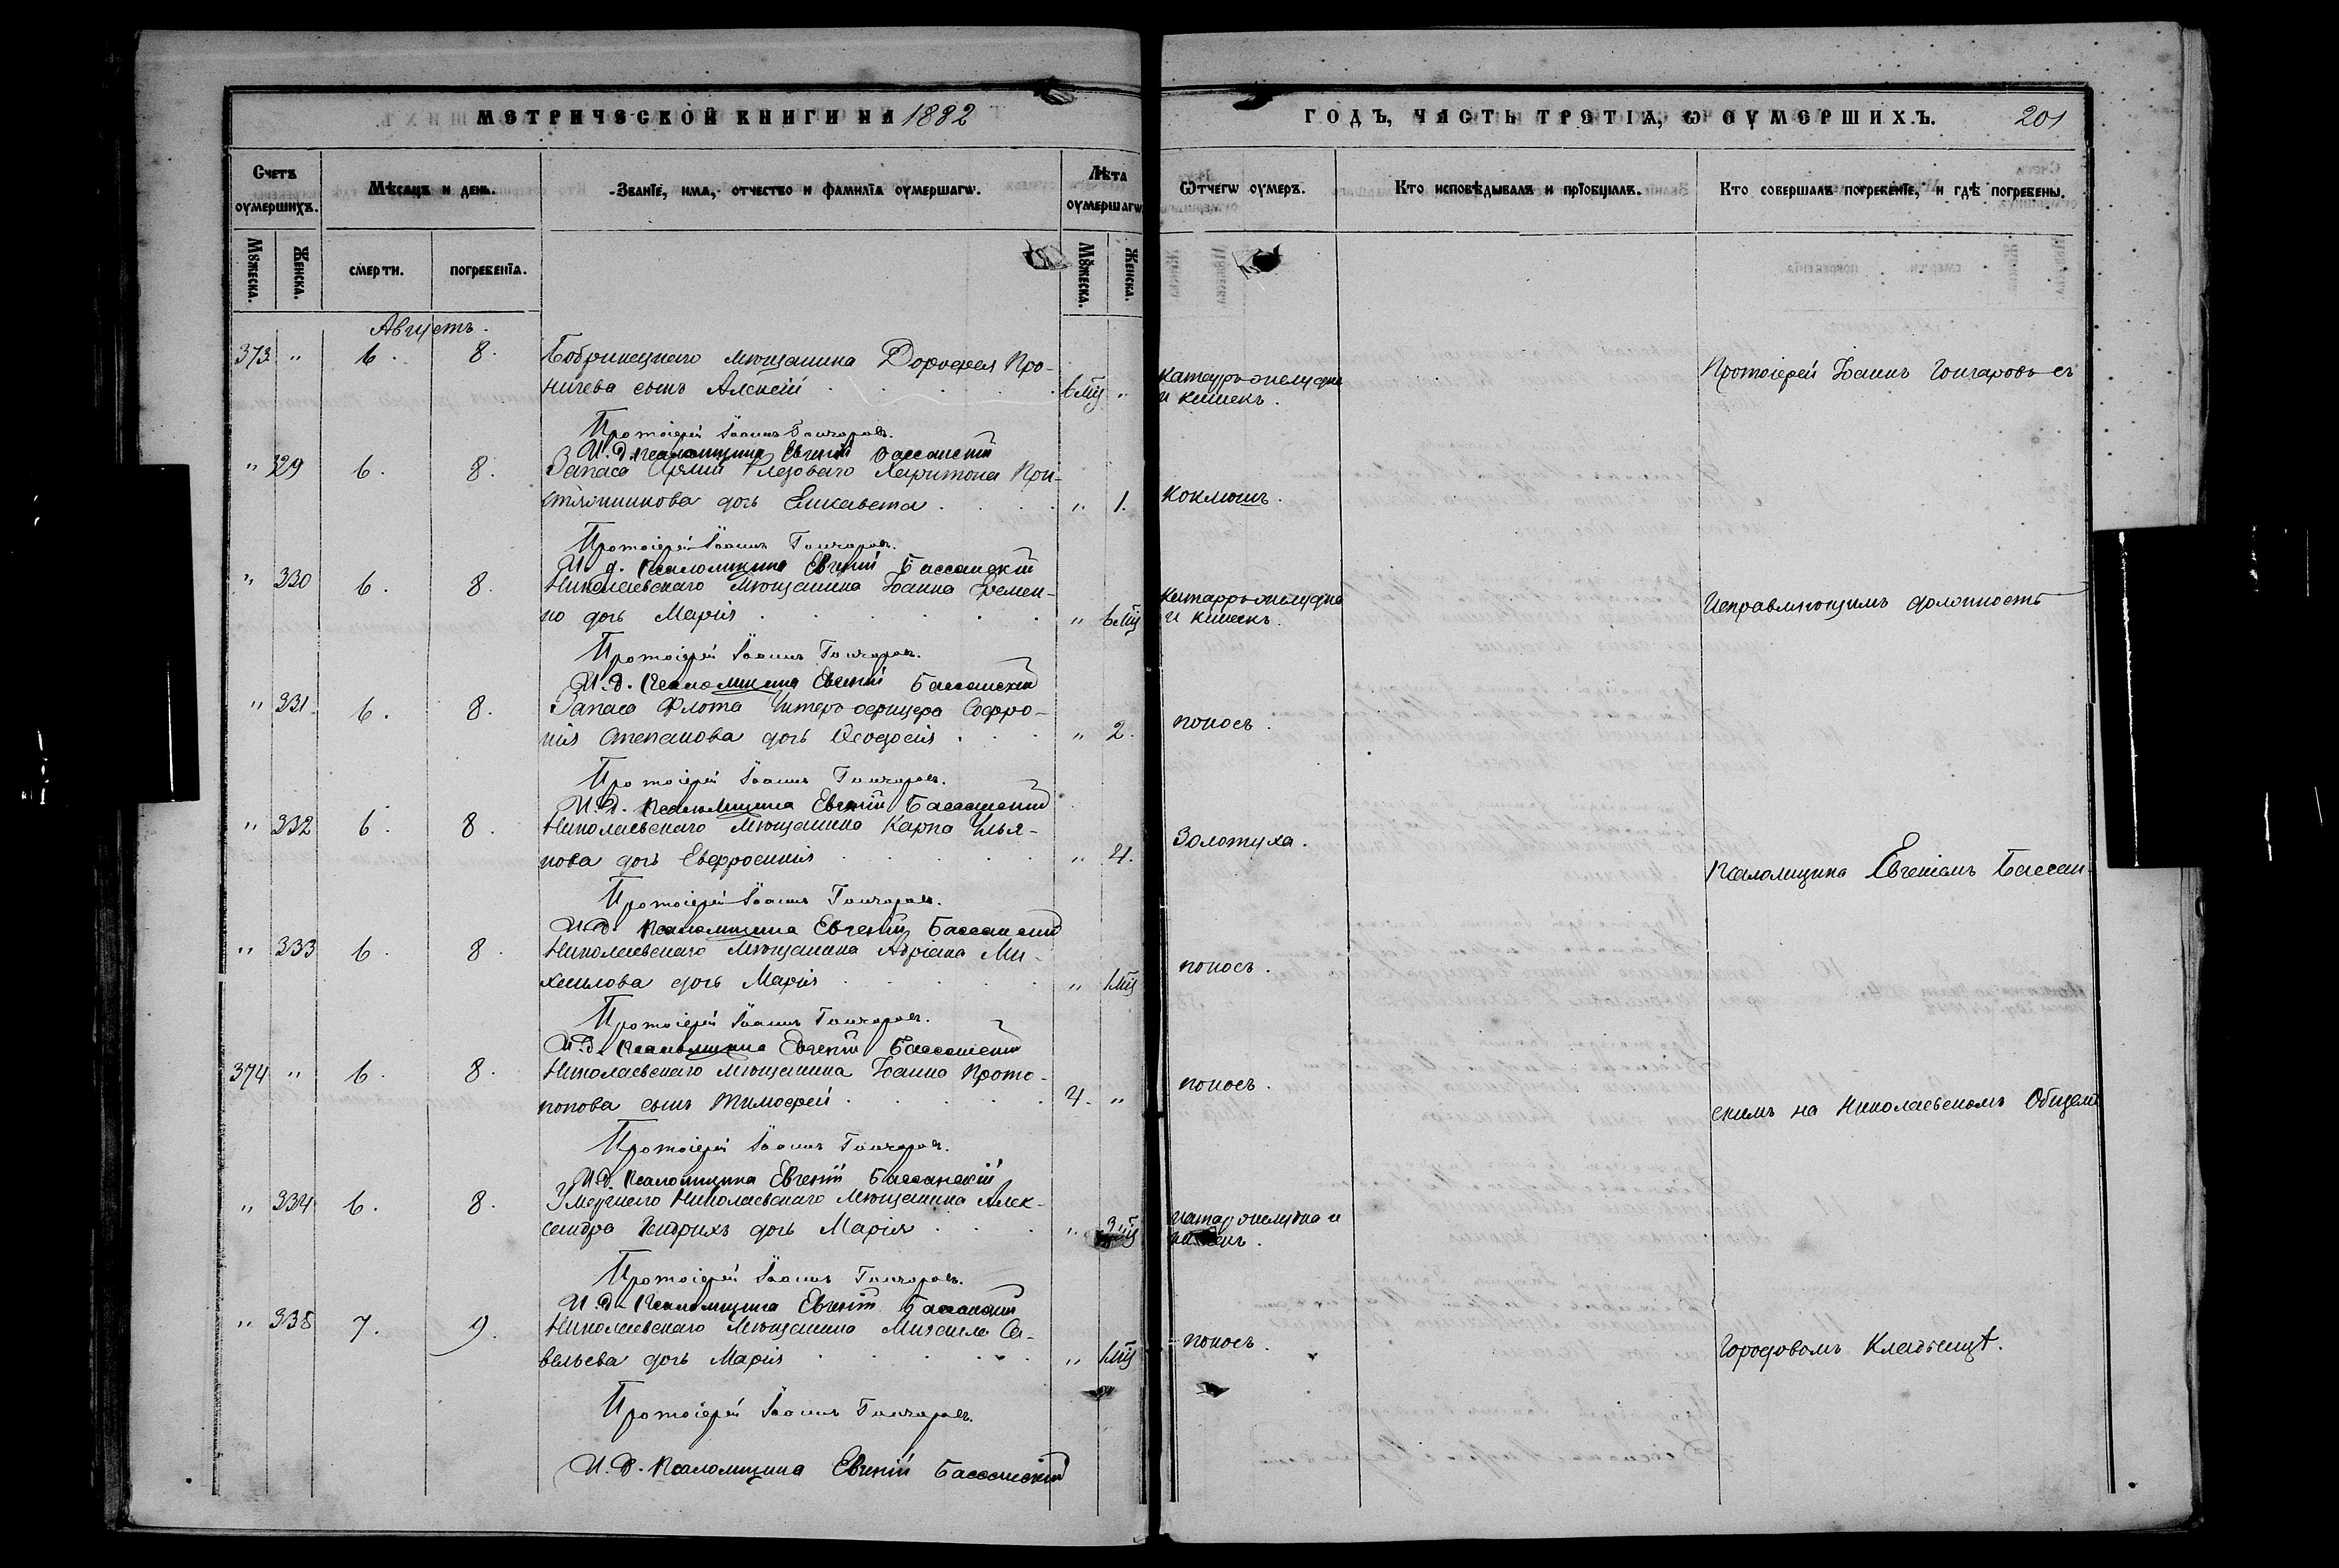 МЕТРИЧЕСКОЙ КНИГИ НА 1882 ГОДЪ, ЧАСТЬ ТРЕТІѦ, Ѡ ОУМЕРШИХЪ. 201
Счетъ оумершихъ.
Мѣсяцъ и день.
Званїе, имѧ, отчество и фамилїѧ оумершагѡ.
Лѣта оумершагѡ
Ѿтчегѡ оумеръ.
Кто исповѣдывалъ и прїобщалъ.
Кто совершалъ погребенїе, и гдѣ погребены.
Мꙋжеска. Женска. смерти. погребенїѧ. Мꙋжеска. Женска.
Августъ.
373 " 6. 8. Бобринецкаго мѣщанина Дорофея Про-
ничева сынъ Алексій 6 мц "
катарръ желудка
и кишекъ.
Протоіерей Іоаннъ Гончаровъ съ
Протоіерей Іоаннъ Гончаровъ.
И. д. псаломщика Евгеній Бассанскій
" 329 6. 8. Запаса Арміи Харитона При-
дочь Елисавета " 1. коклюшъ.
Протоіерей Іоаннъ Гончаровъ.
И. д. псаломщика Евгеній Бассанскій
" 330 6. 8. Николаевскаго мѣщанина Іоанна Еремен-
ко дочь Марія " 6 мц
катарръ желудка
и кишекъ.
Исправляющимъ должность
Протоіерей Іоаннъ Гончаровъ.
И. д. псаломщика Евгеній Бассанскій
" 331. 6. 8. Запаса Флота Унтеръ офицера Софро-
нія Степанова дочь Ѳеодосія " 2. поносъ.
Протоіерей Іоаннъ Гончаровъ.
И. д. псаломщика Евгеній Бассанскій
" 332 6. 8. Николаевскаго мѣщанина Карпа Улья-
нова дочь Евфросинія " 4. Золотуха.
псаломщика Евгеніемъ Бассан-
Протоіерей Іоаннъ Гончаровъ.
И. д. псаломщика Евгеній Бассанскій
" 333 6. 8. Николаевскаго мѣщанина Адріана Ми-
хайлова дочь Марія " 1 мц поносъ.
Протоіерей Іоаннъ Гончаровъ.
И. д. псаломщика Евгеній Бассанскій
374 " 6. 8. Николаевскаго мѣщанина Іоанна Прото-
попова сынъ Тимофей 4. " поносъ.
скимъ на Николаевскомъ Общемъ
Протоіерей Іоаннъ Гончаровъ.
И. д. псаломщика Евгеній Бассанскій
" 334 6. 8. Умершаго Николаевскаго мѣщанина Алек-
сандра Гендрихъ дочь Марія " 3 мц
катар желудка и
Протоіерей Іоаннъ Гончаровъ.
И. д. псаломщика Евгеній Бассанскій
" 335 7. 9. Николаевскаго мѣщанина Михаила Са-
вельева дочь Марія " 1 мц поносъ.
Городовомъ Кладбищѣ.
Протоіерей Іоаннъ Гончаровъ.
И. д. псаломщика Евгеній Бассанскій